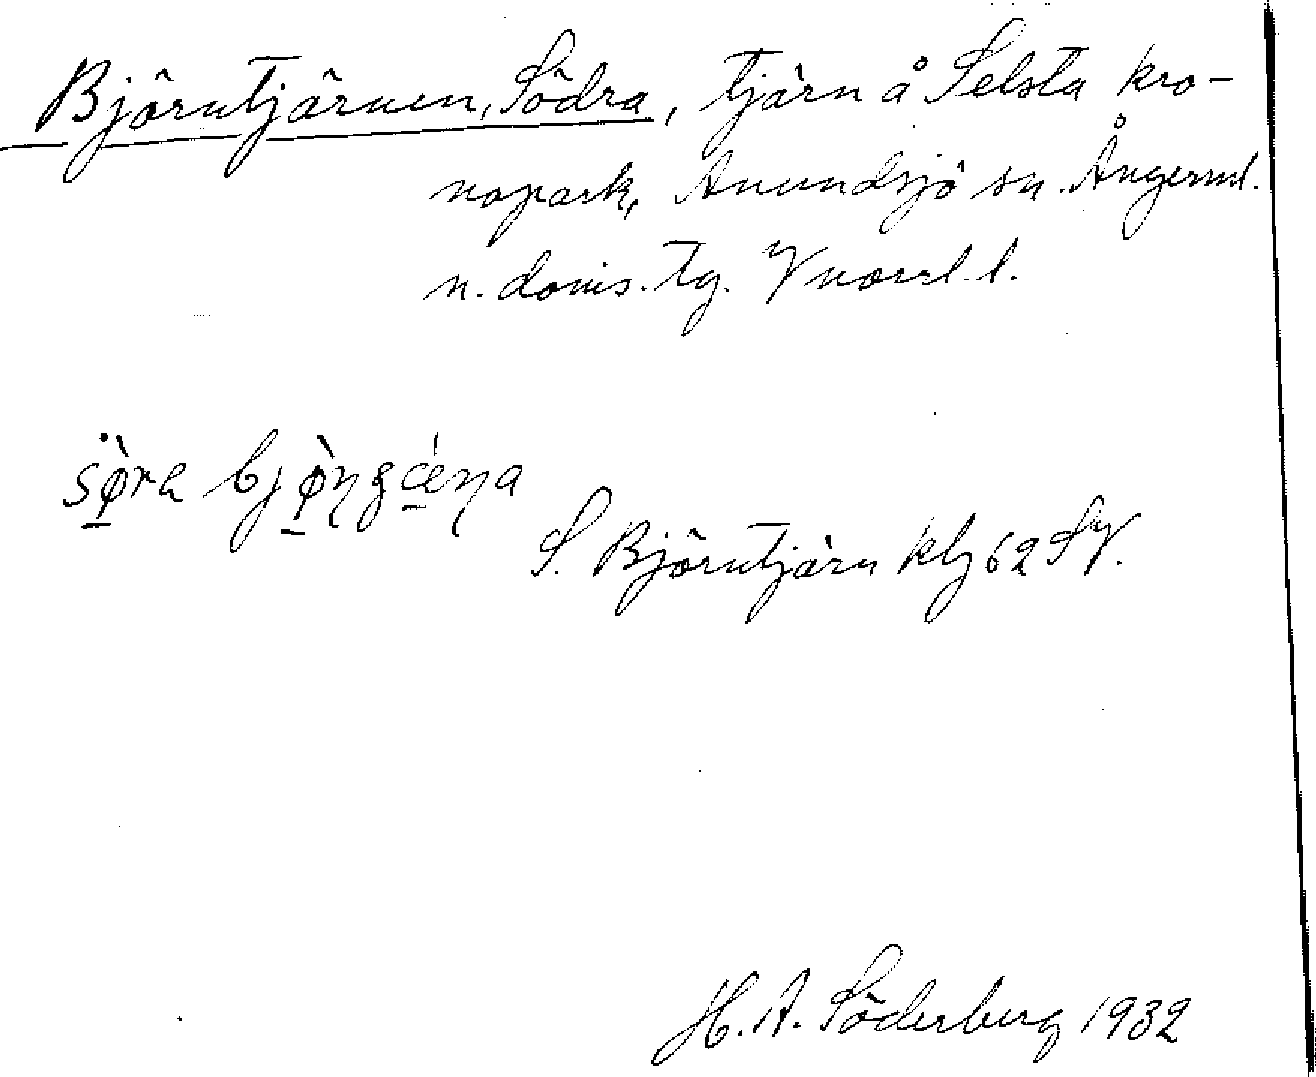 Björntjärnen, Södra, tjärn å Selsta kro-
nopark, Anundsjö sn. Ångerml.
n. doms. tg. V norrl. l.
sö̀ra
S. Björntjärn kbl 62 SV.
H. A. Söderberg 1932